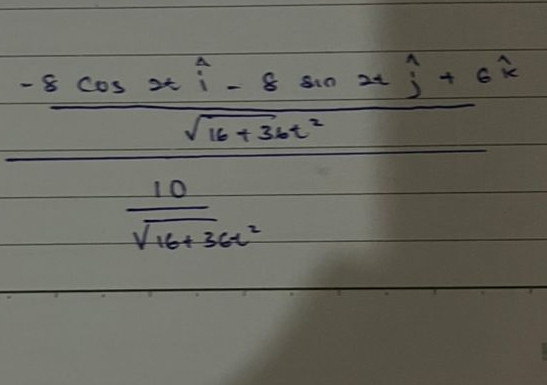 -8 cos 2t î - 8 sin 2t ĵ + 6 k̂
√16+36t²
10
√16+36t²